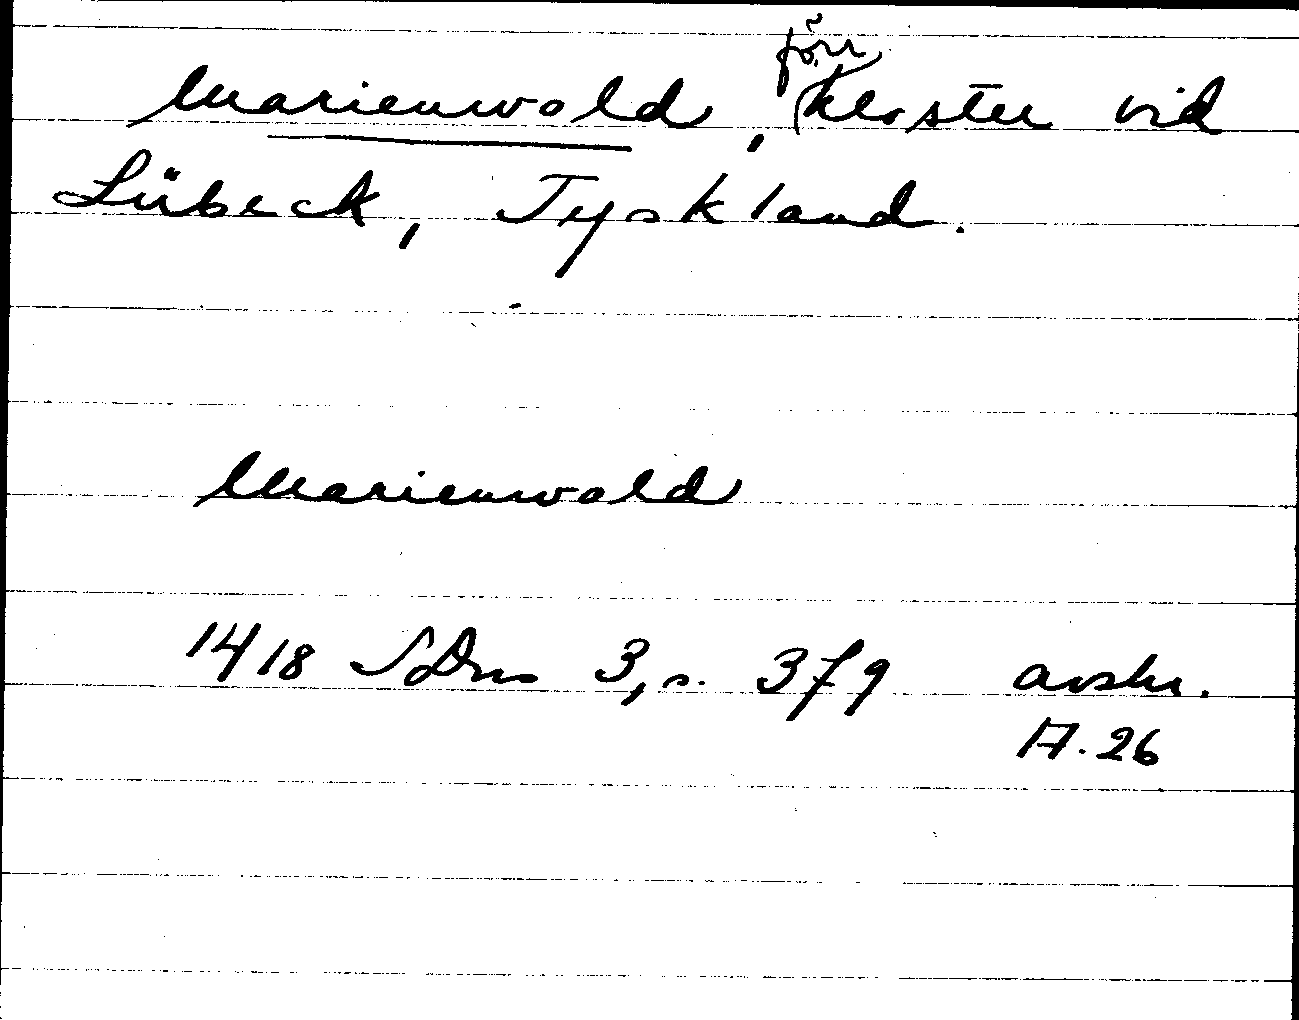 Marienwald, förr kloster vid
Lübeck, Tyskland.
Marienwald
1418 SDns 3, s. 379 avskr.
A. 26